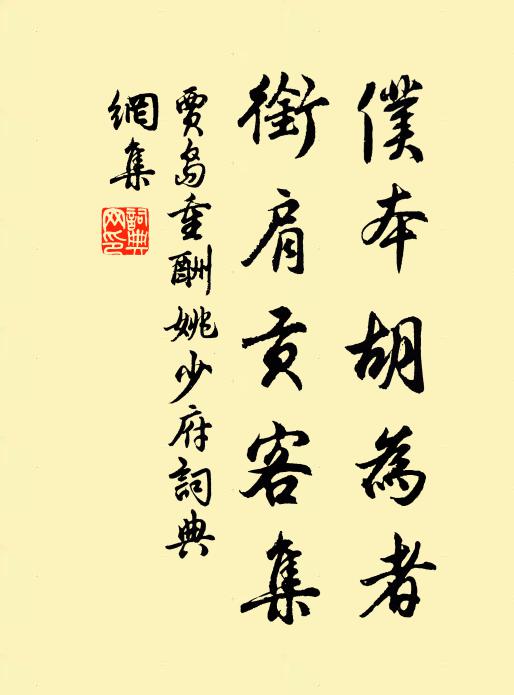 僕本胡為者
銜肩貢客集
賈島重酬姚少府詞典
網集
詞典網印